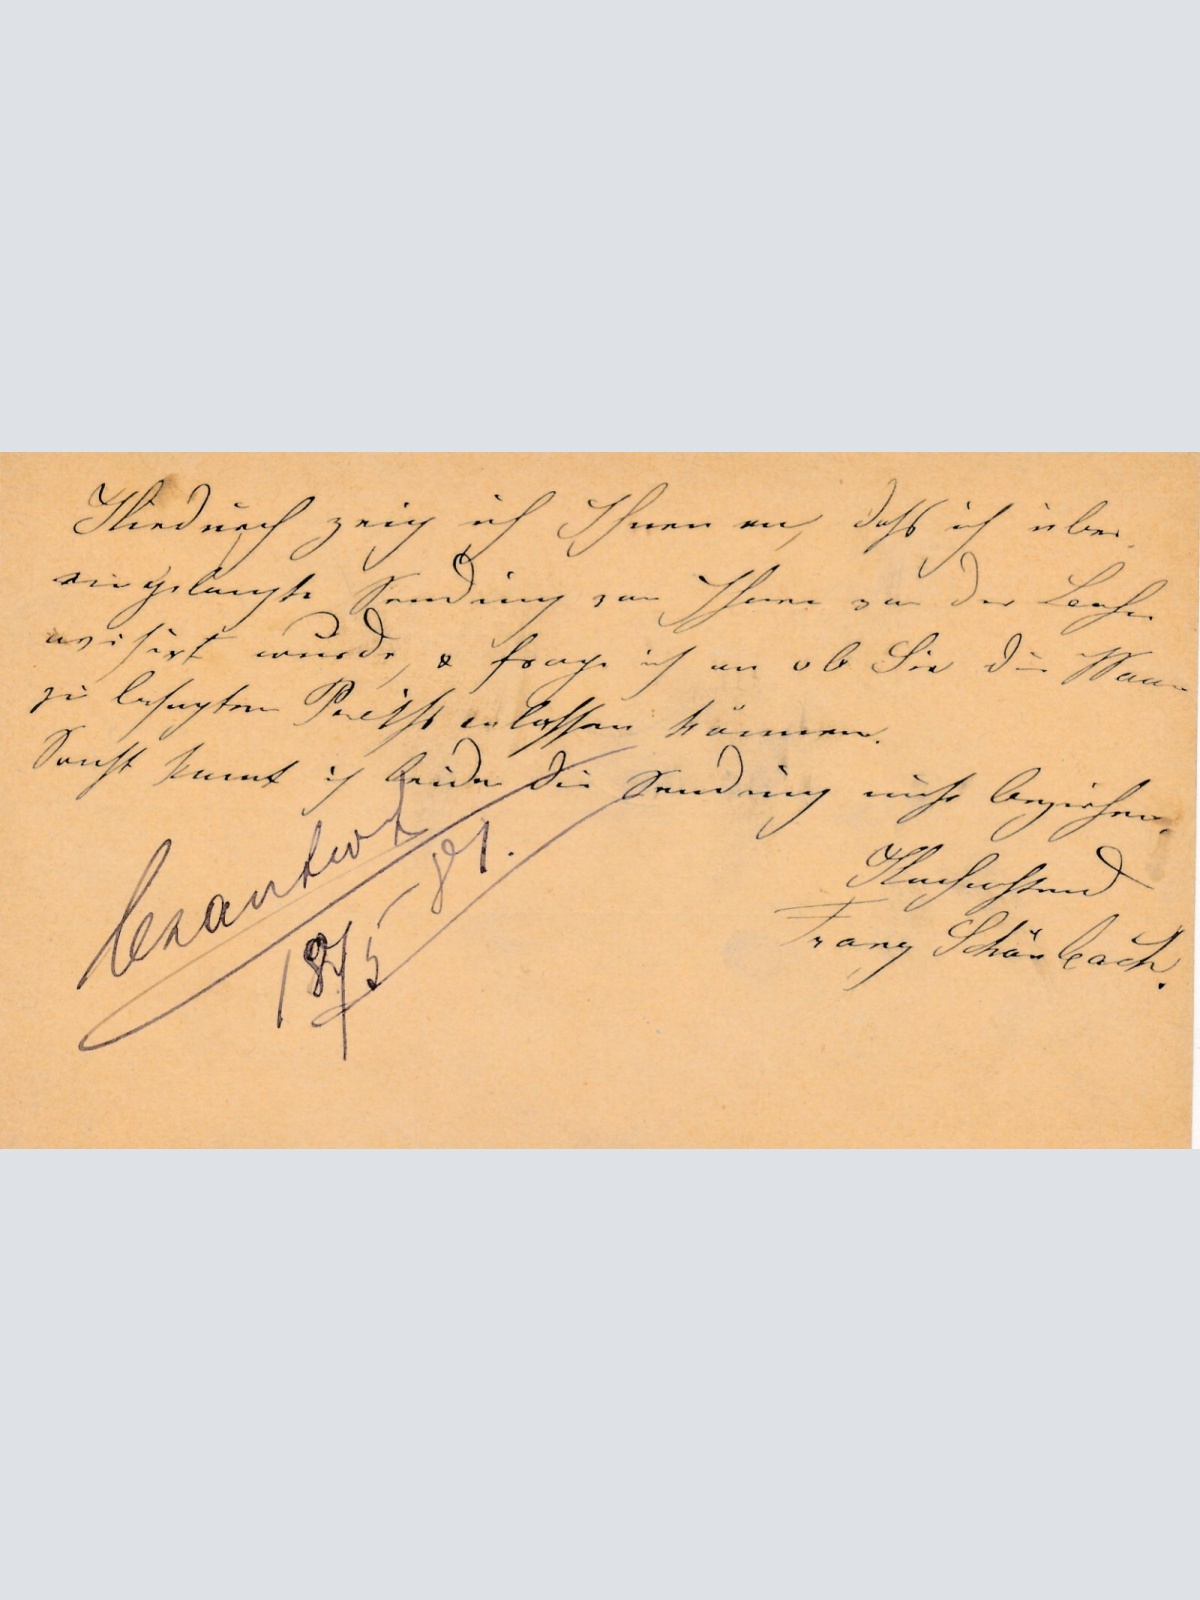 Hiedurch zeig ich Ihnen an, dass ich über
eingelangte Sendung von Ihnen von der Bahn
avisirt wurde, & frage ich an ob Sie die Waar
zu besagten Preiss erlassen können.
Sonst kannt ich leider die Sendung nicht beziehen.
Franz Schönbach.
beantwort
18/5 - 81.